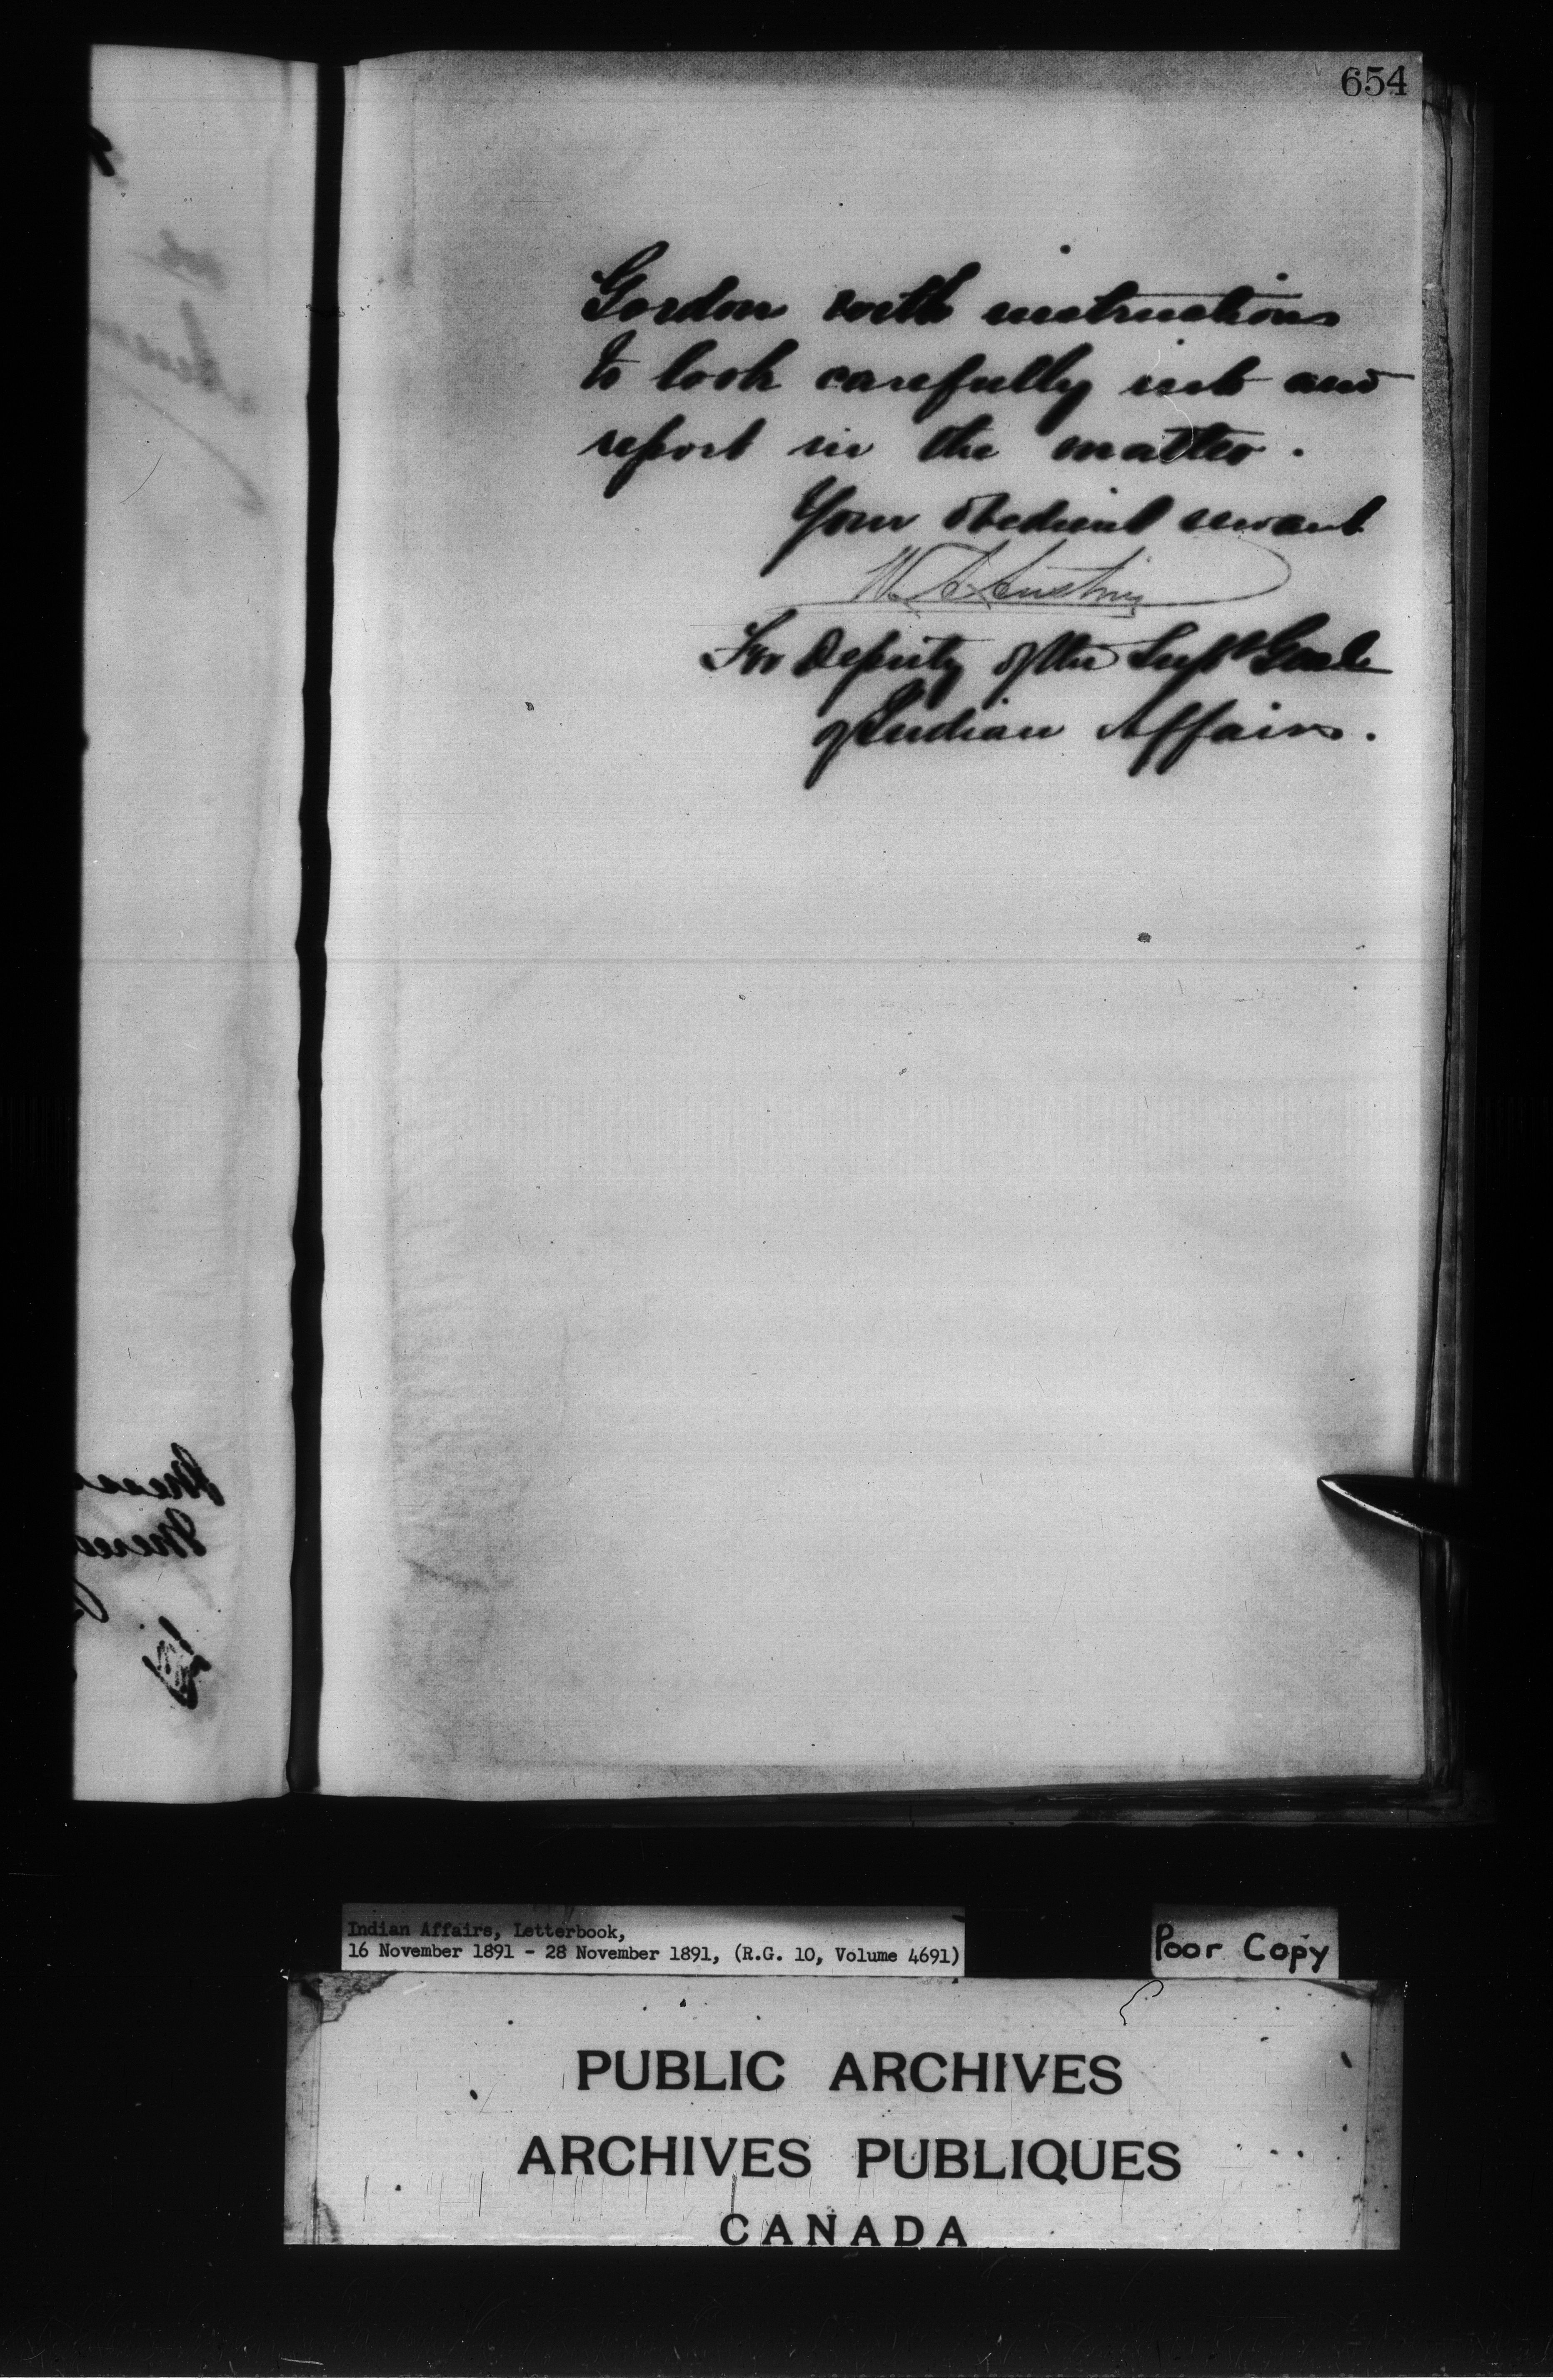 654
Gordon with instructions
to look carefully into and
report in the matter.
Your obedient servant
W. A. Austin
For Deputy of the Supt Genl
of Indian Affairs.
Indian Affairs, Letterbook,
16 November 1891 - 28 November 1891, (R.G. 10, Volume 4691)
Poor Copy
PUBLIC ARCHIVES
ARCHIVES PUBLIQUES
CANADA